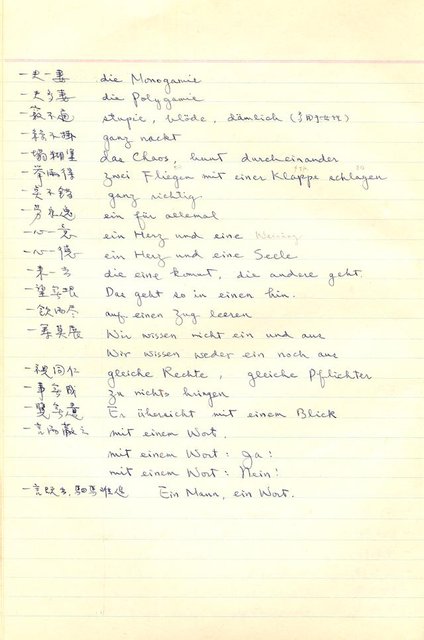 一夫一妻 die Monogamie
一夫多妻 die Polygamie
一竅不通 stupie, blöde, dämlich (多用於女性)
一絲不掛 ganz nackt
一塌糊塗 das Chaos, bunt durcheinander
一舉兩得 zwei Fliegen mit einer Klappe schlagen
一點不錯 ganz richtig.
一勞永逸 ein für allemal
一心一意 ein Herz und eine
一心一德 ein Herz und eine Seele
一來一去 die eine kommt, die andere geht.
一望無垠 Das geht so in einen hin.
一飲而盡 auf einen Zug leeren
一籌莫展 Wir wissen nicht ein und aus
Wir wissen weder ein noch aus
一視同仁 gleiche Rechte, gleiche Pflichten
一事無成 zu nichts bringen
一覽無遺 Er übersieht mit einem Blick
一言而蔽之 mit einem Wort,
mit einem Wort: Ja!
mit einem Wort: Nein!
一言既出,駟馬難追 Ein Mann, ein Wort.